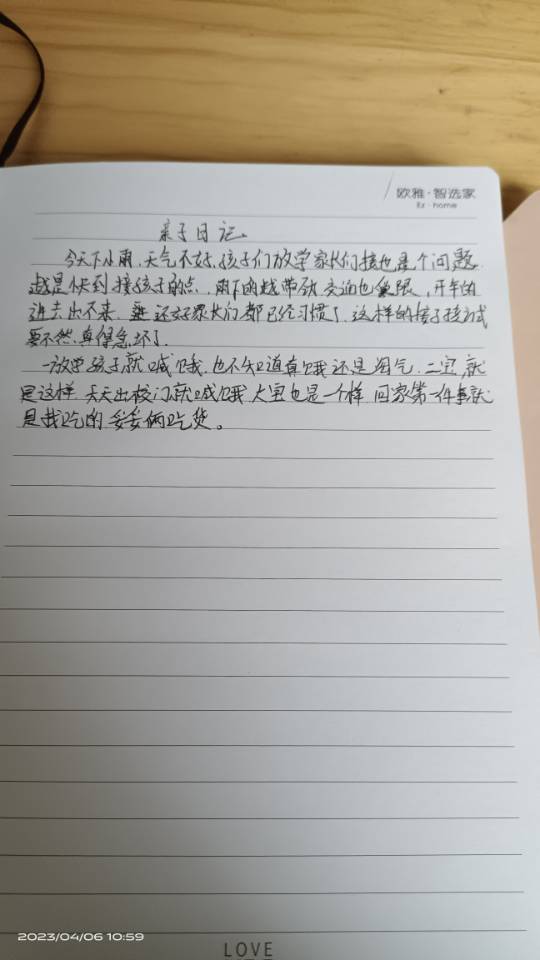 欧雅·智选家
Ez·home
亲子日记
今天下小雨,天气不好,孩子们放学家长们接也是个问题
越是快到接孩子的点,雨下的越带劲,交通也受限,开车的
进去出不来,还好家长们都已经习惯了,这样的接子接方式
要不然,真得急坏了。
一放学孩子就喊饿,也不知道真饿还是淘气,二宝就
是这样,天天出校门就喊饿 大宝也是一个样 回家第一件事就
是找吃的 妥妥俩吃货。
2023/04/06 10:59
LOVE